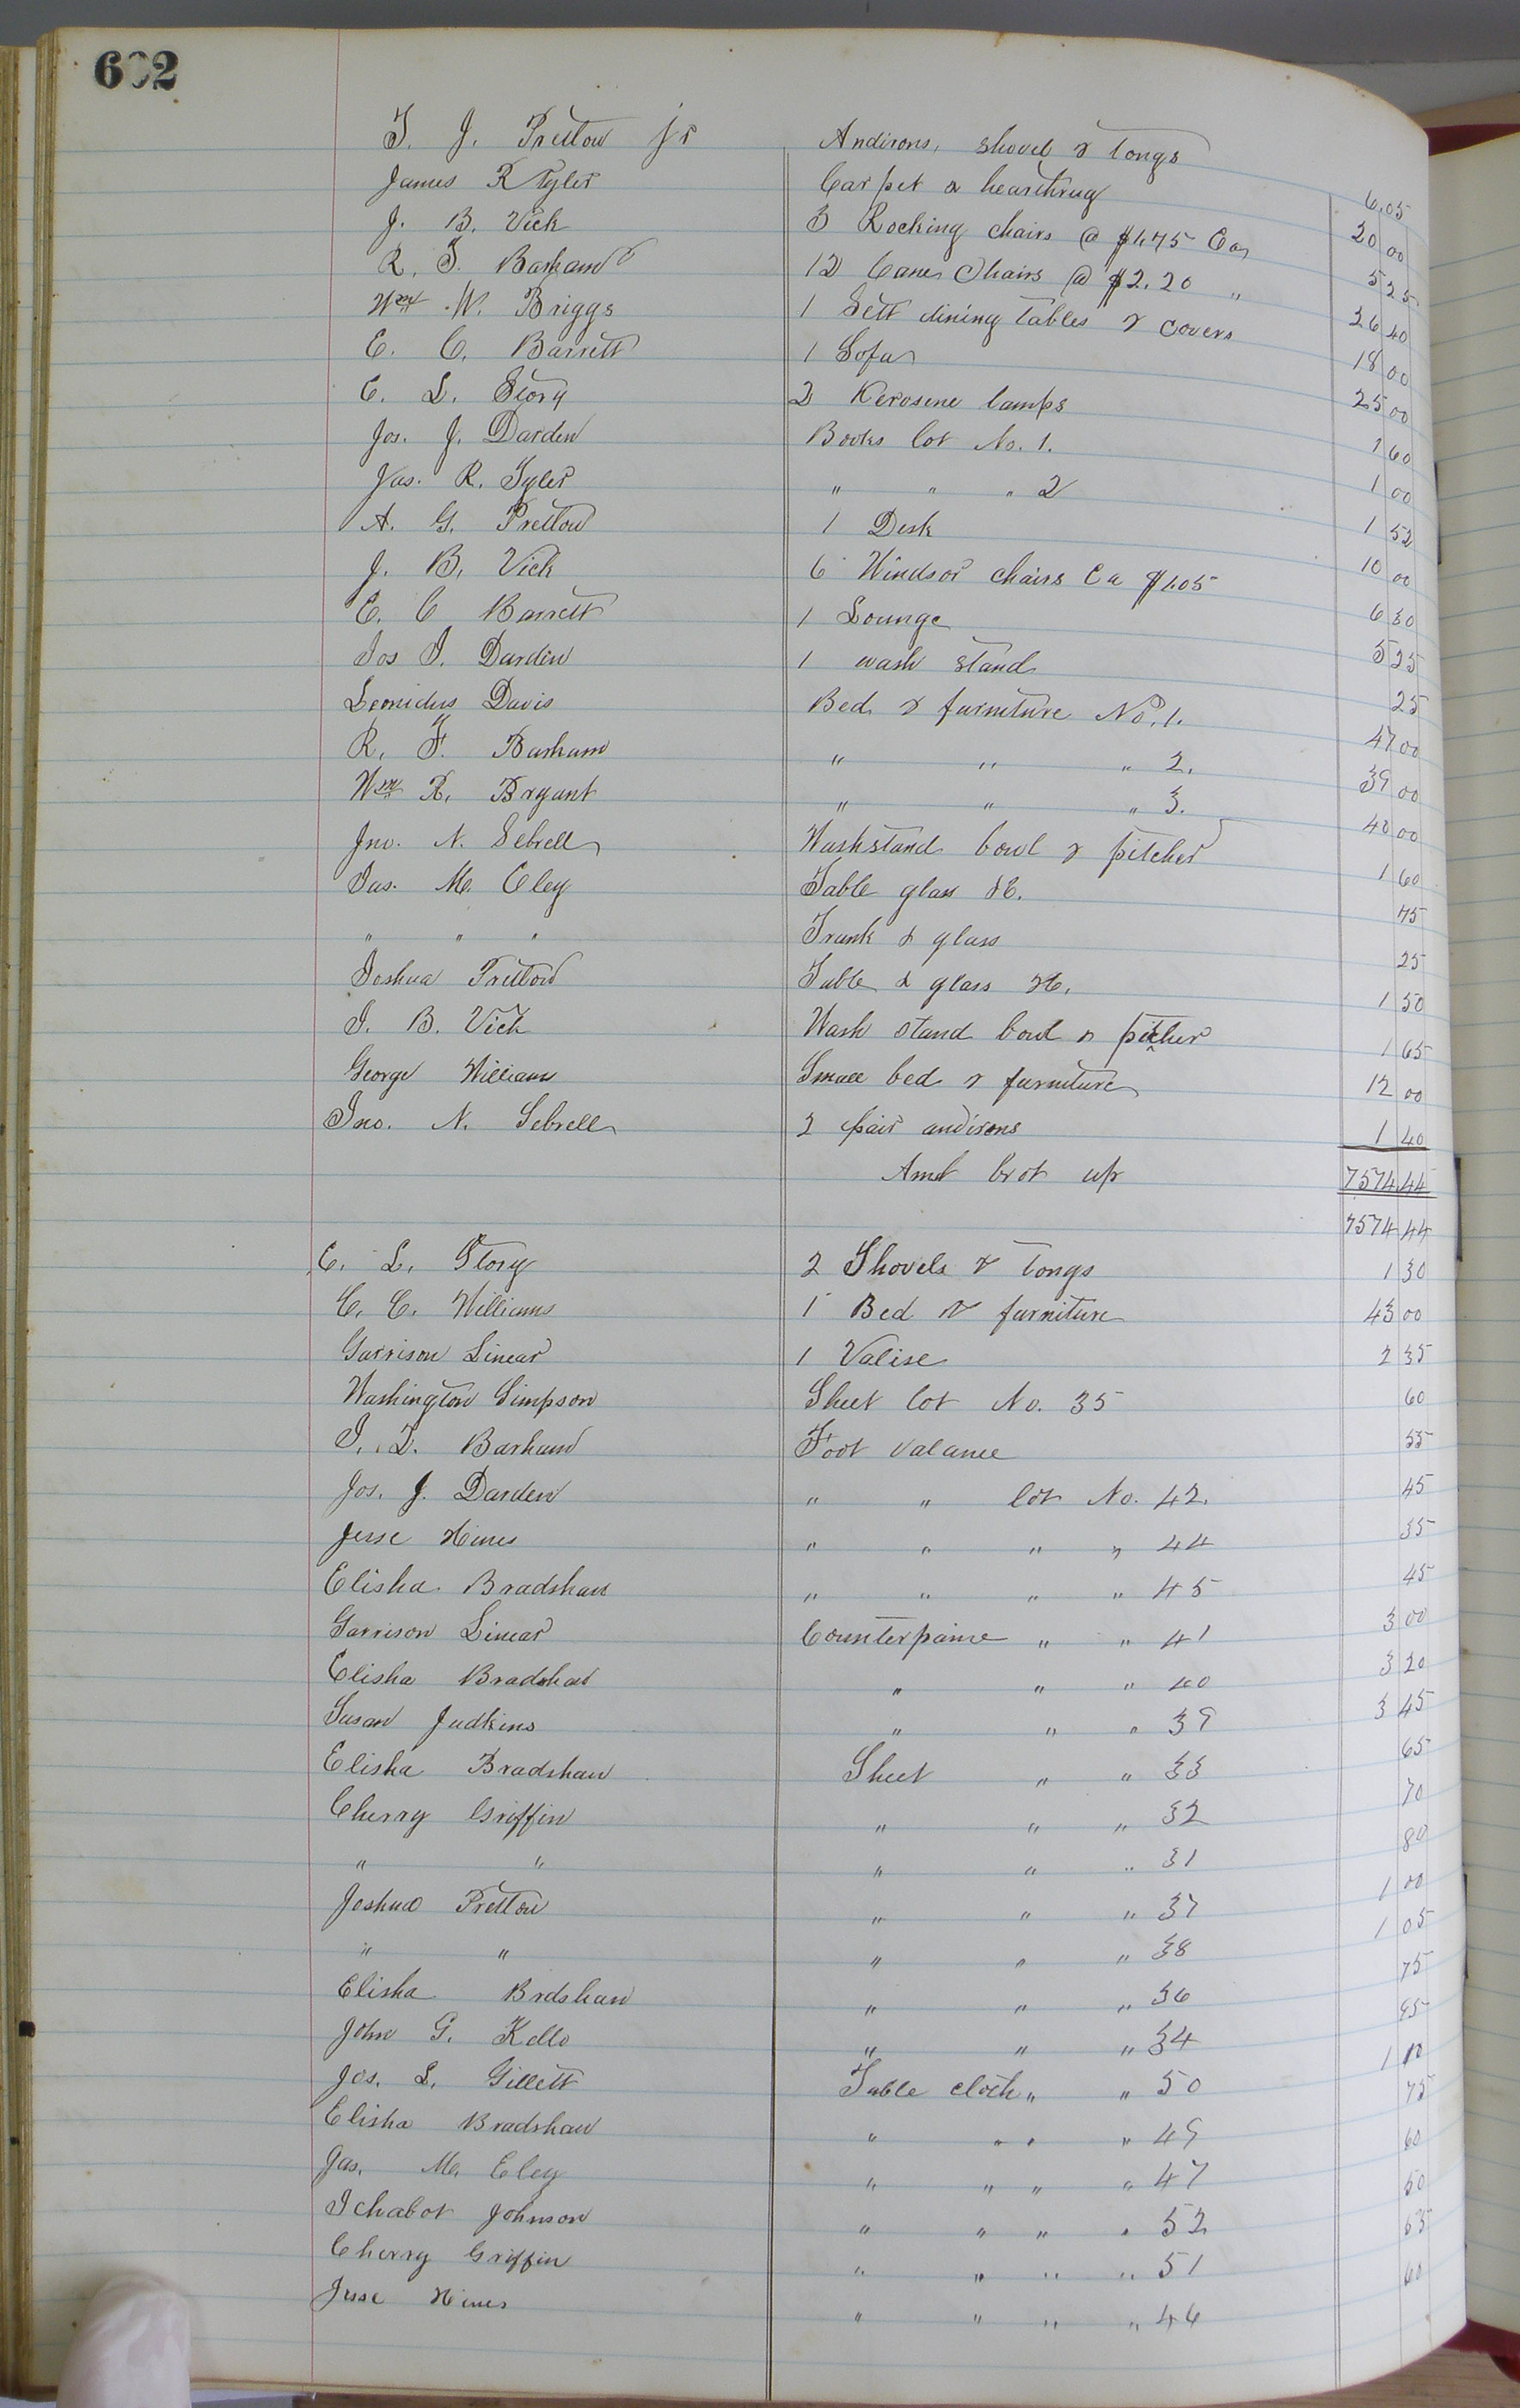 602
T. J. Pretlow jr Andirons, shovel & tongs 6.05
James R Tyler Carpet & hearthrug 20 00
J. B. Vick 3 Rocking chairs @ $1.75 Ea 5 25
R. T. Barham 12 Cane Chairs @ $2.20 " 26 40
Wm W. Briggs 1 Sett dining tables & covers 18 00
E. C. Barrett 1 Sofa 25 00
E. L. Story 2 Kerosene lamps 1 60
Jos. J. Darden Books lot No. 1. 1 00
Jas. R. Tyler " " " 2 1 52
A. G. Pretlow 1 Desk 10 00
J. B. Vick 6 Windsor chairs Ea $1.05 6 30
E. C Barrett 1 Lounge 5 25
Jos J. Darden 1 wash stand 25
Leonidus Davis Bed & furniture No. 1. 47 00
R. T. Barham " " " 2. 39 00
Wm R. Bryant " " " 3. 40 00
Jno. N. Sebrell Washstand bowl & pitcher 1 60
Jas. M. Eley Table glass &c. 75
" " " Trunk & glass 25
Joshua Pretlow Table & glass &c. 1 50
J. B. Vick Wash stand bowl & pitcher 1 65
George Williams Small bed & furniture 12 00
Jno. N. Sebrell 2 pair andirons 1 40
Amt brot up 7574 44
7574 44
E. L. Story 2 Shovels & tongs 1 30
E. C. Williams 1 Bed & furniture 43 00
Garrison Linear 1 Valise 2 35
Washington Simpson Sheet lot No. 35 60
J. D. Barham Foot valance 55
Jos. J. Darden " " lot No. 42. 45
Jesse Hines " " " " 44 35
Elisha Bradshaw " " " " 45 45
Garrison Linear Counterpaine " " 41 3 00
Elisha Bradshaw " " " 40 3 20
Susan Judkins " " " 39 3 45
Elisha Bradshaw Sheet " " 33 65
Cherry Griffin " " " 32 70
" " " " " 31 80
Joshua Pretlow " " " 37 1 00
" " " " " 38 1 05
Elisha Brdshaw " " " 36 75
John G. Kello " " " 34 95
Jos. L. Gillett Table cloth " " 50 1 10
Elisha Bradshaw " " " " 49 75
Jas. M. Eley " " " " 47 60
Ichabot Johnson " " " " 52 50
Cherry Griffin " " " " 51 65
Jesse Hines " " " " 46 60